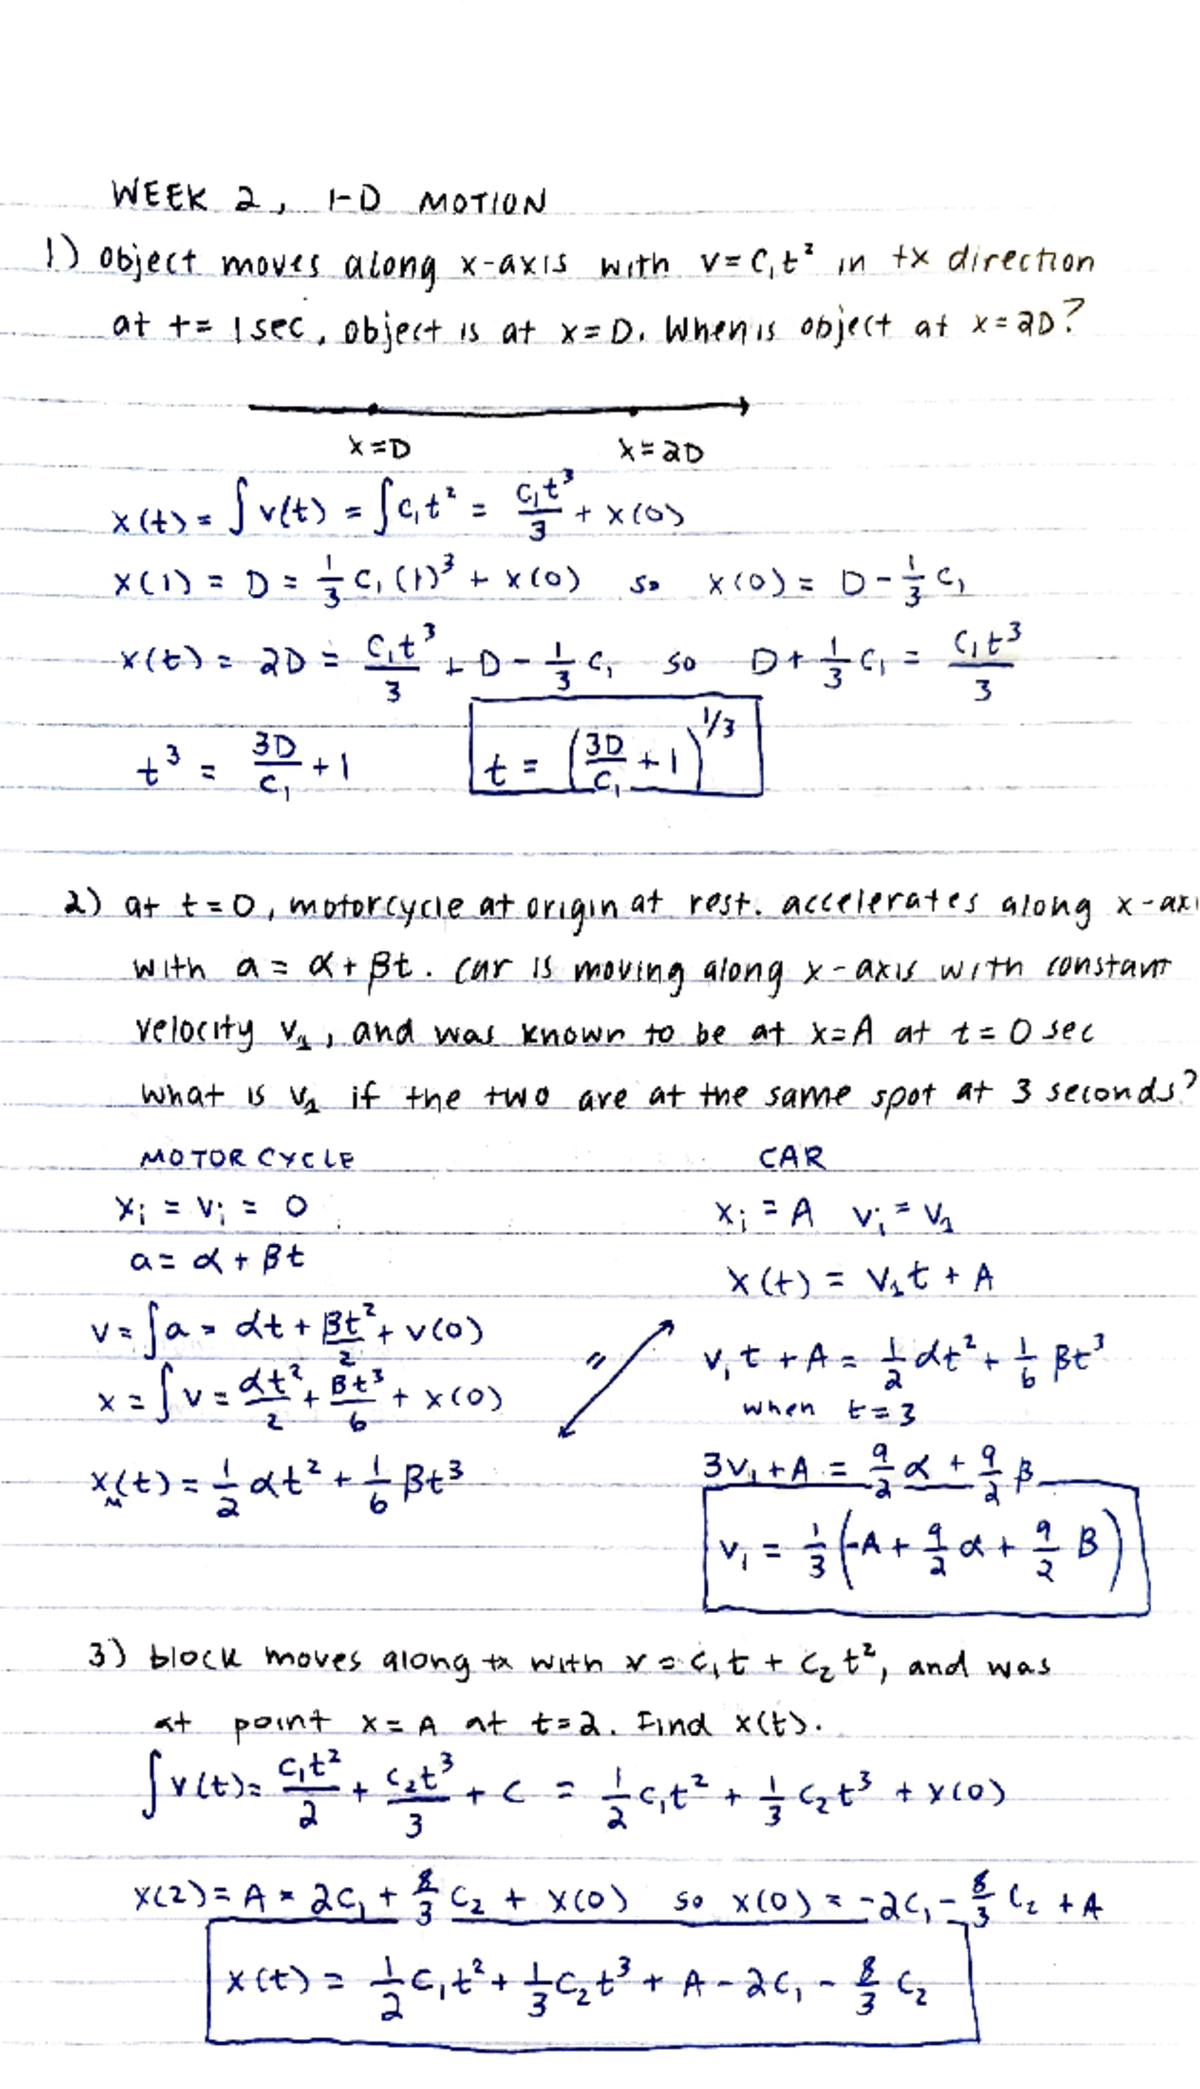 WEEK 2, 1-D MOTION
1.) object moves along x-axis with v = C₁t² in +x direction
at t = 1 sec, object is at x = D. When is object at x = 2D?
x = D x = 2D
x(t) = ∫v(t) = ∫C₁t² = C₁t³/3 + x(0)
x(1) = D = 1/3 C₁(1)³ + x(0) so x(0) = D - 1/3 C₁
x(t) = 2D = C₁t³/3 + D - 1/3 C₁ so D + 1/3 C₁ = C₁t³/3
t³ = 3D/C₁ + 1 t = (3D/C₁ + 1)^1/3
2) at t = 0, motorcycle at origin at rest. accelerates along x-axi
with a = α + βt. Car is moving along x-axis with constant
velocity v₁, and was known to be at x = A at t = 0 sec
What is v₁ if the two are at the same spot at 3 seconds?
MOTORCYCLE CAR
xᵢ = vᵢ = 0 xᵢ = A vᵢ = v₁
a = α + βt
x(t) = v₁t + A
v = ∫a = αt + βt²/2 + v(0)
v₁t + A = 1/2 αt² + 1/6 βt³
x = ∫v = αt²/2 + βt³/6 + x(0)
when t = 3
x_M(t) = 1/2 αt² + 1/6 βt³ 3v₁ + A = 9/2 α + 9/2 β
v₁ = 1/3 (-A + 9/2 α + 9/2 β)
3) block moves along +x with v = C₁t + C₂t², and was
at point x = A at t = 2. Find x(t).
∫v(t) = C₁t²/2 + C₂t³/3 + C = 1/2 C₁t² + 1/3 C₂t³ + x(0)
x(2) = A = 2C₁ + 8/3 C₂ + x(0) so x(0) = -2C₁ - 8/3 C₂ + A
x(t) = 1/2 C₁t² + 1/3 C₂t³ + A - 2C₁ - 8/3 C₂